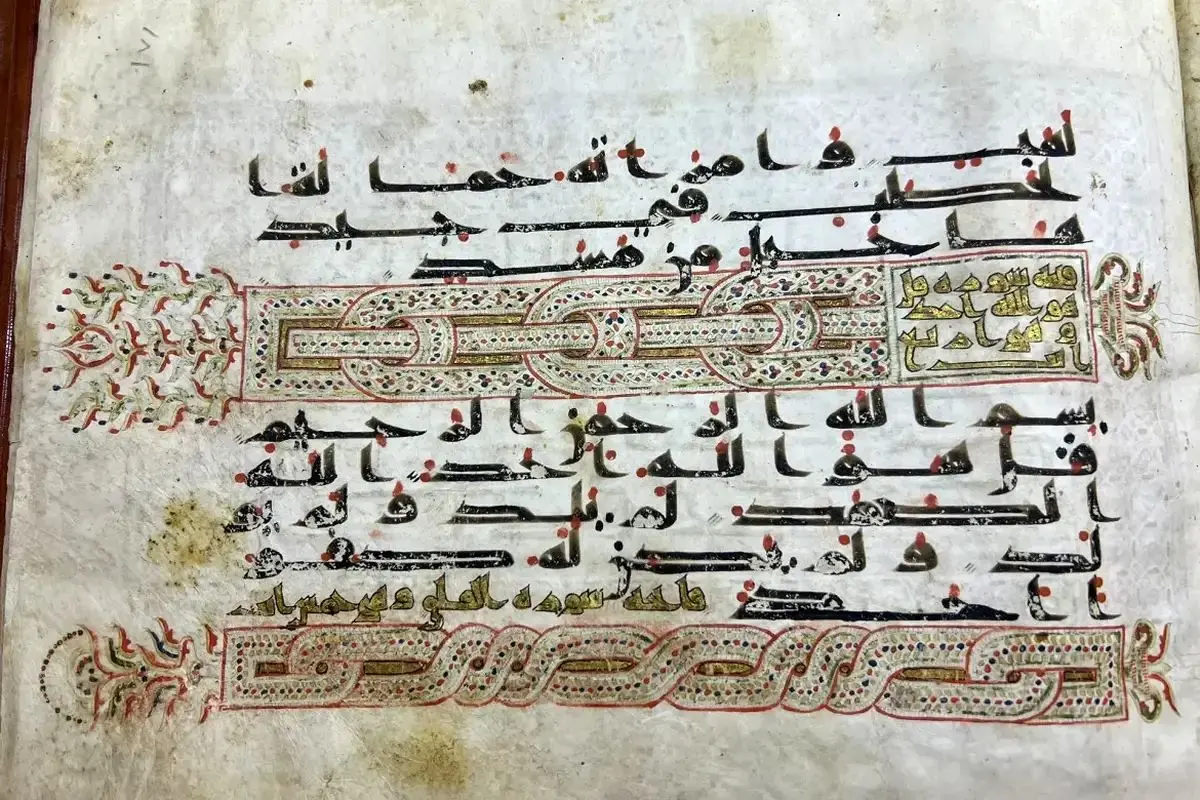 ١٧١
لهب و امراته حمالة ا
لحطب في جيد
ها حبل من مسد
فاتحه سورة قل
هو الله احد
و هي اربع
ايت
بسم الله الرحمن الرحيم
قل هو الله احد الله
الصمد لم يلد و لم يو
لد و لم يكن له كفو
ا احد فاتحه سورة الفلق و هي خمس ايت